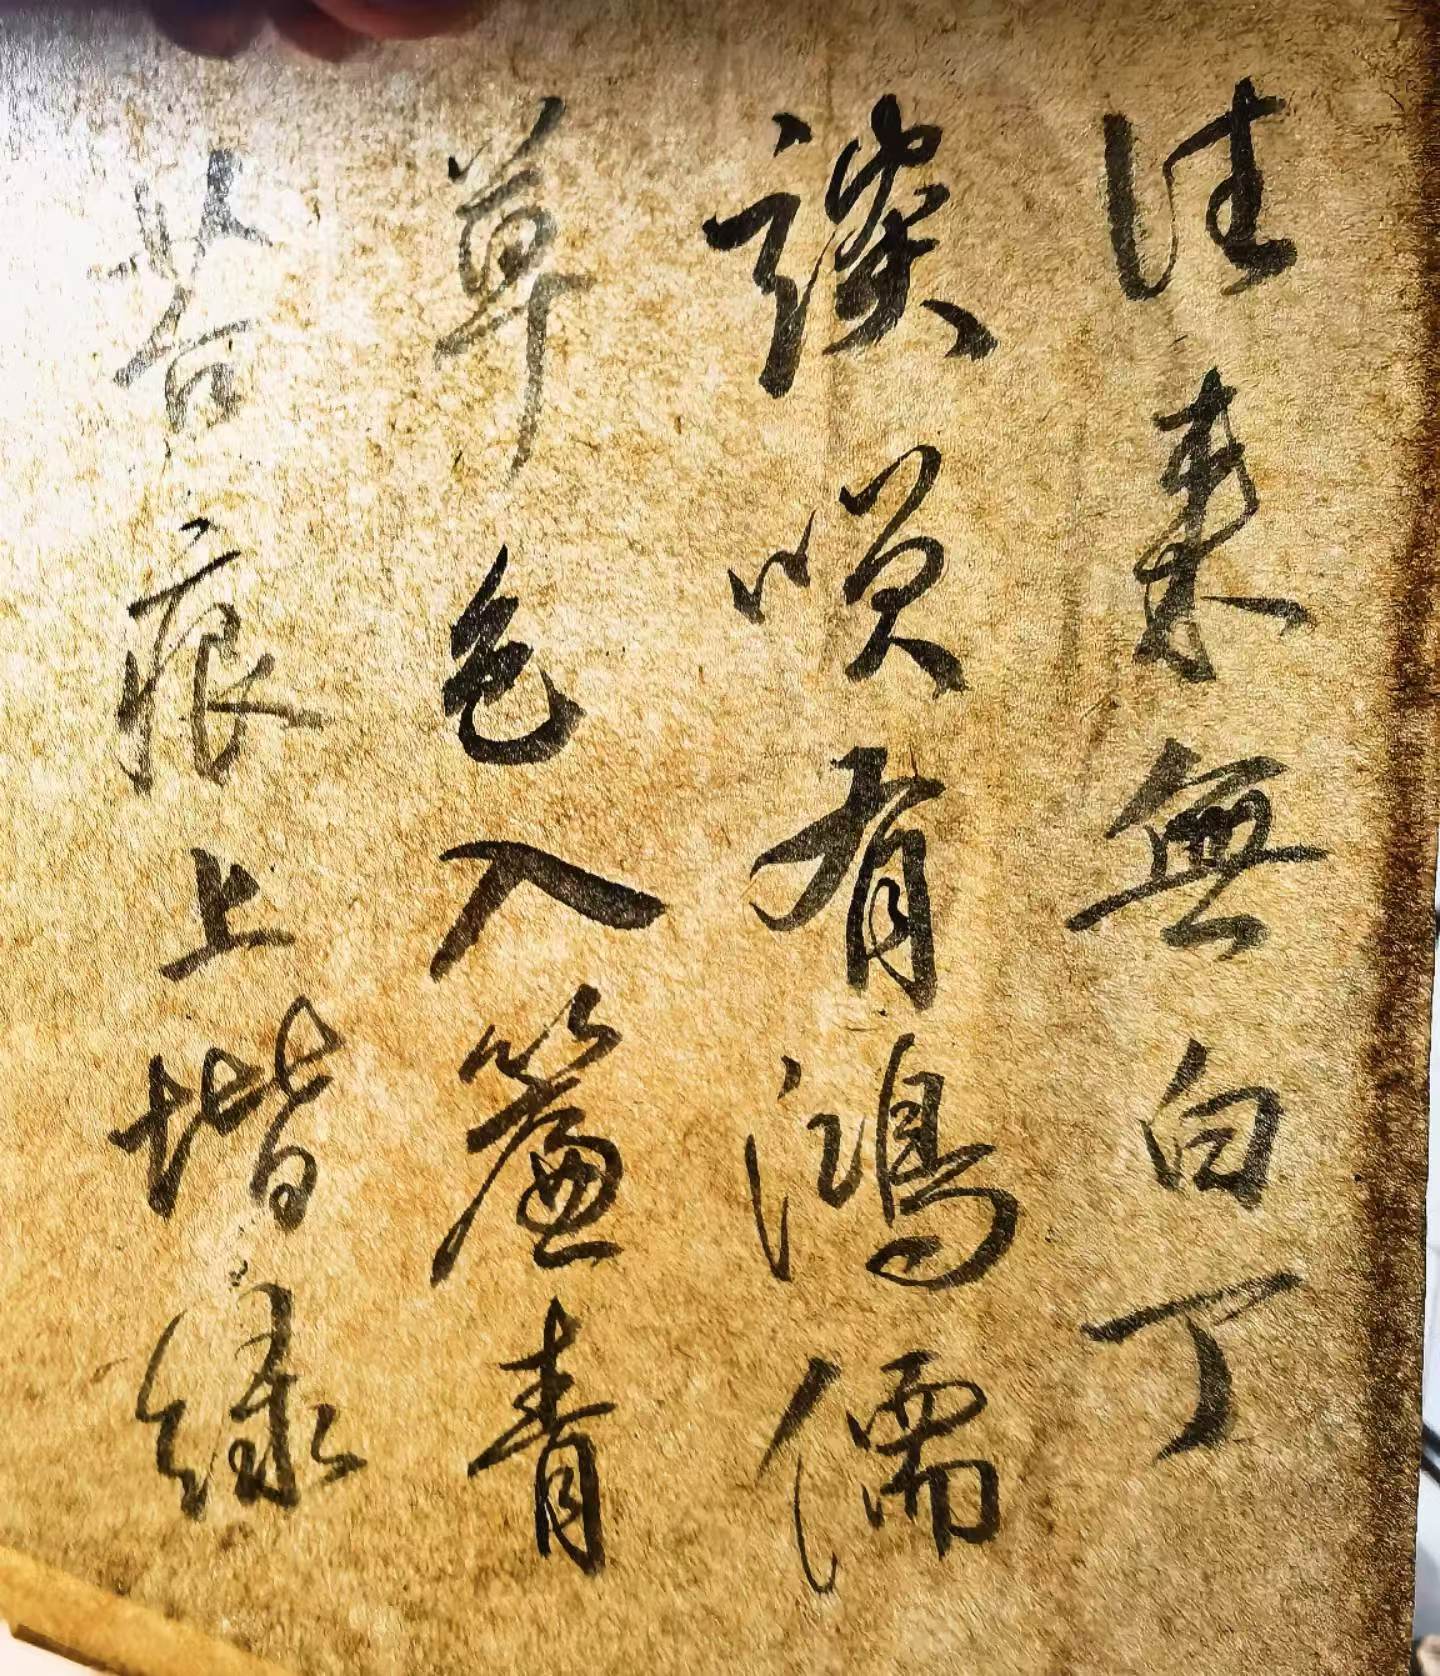 往来無白丁
談唄有鴻儒
草色入簾青
苔痕上堦緑